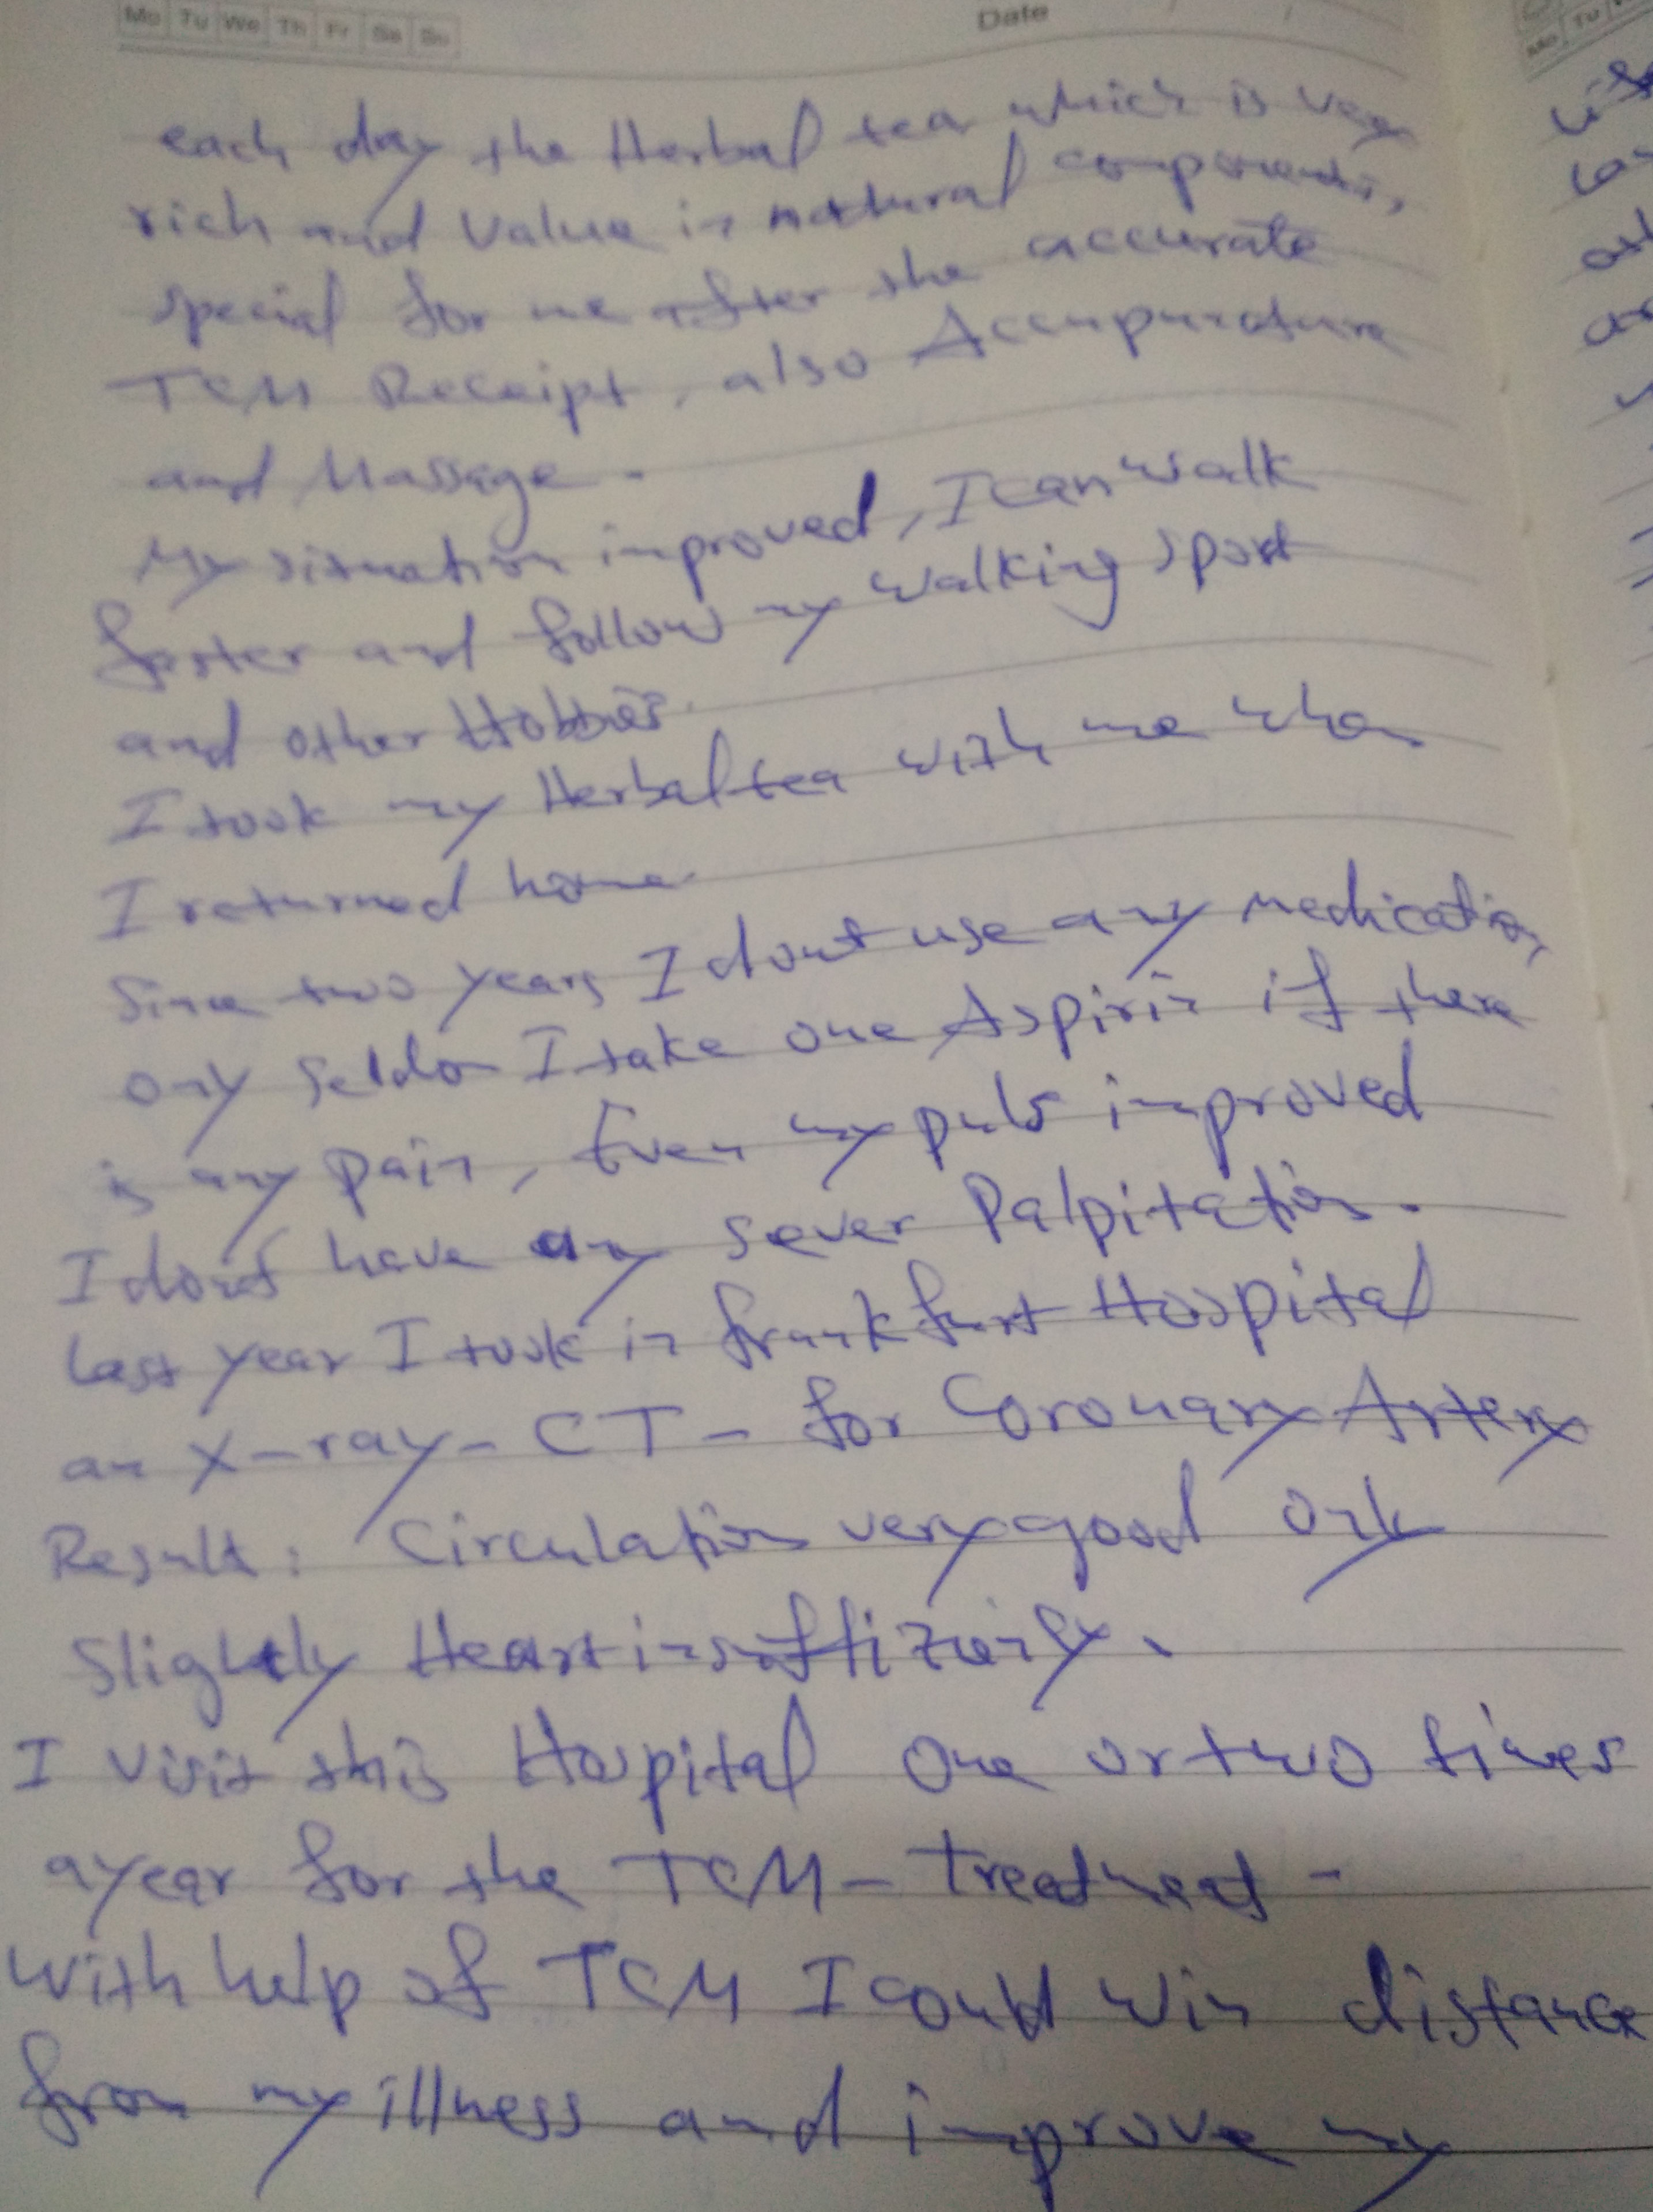 Mo Tu We Th Fr Sa Su
Date
each day the Herbal tea which is very
rich and value in natural components,
special for me after the accurate
TCM Receipt, also Accupuncture
and Massage.
My situation improved, I can walk
faster and follow my walking sport
and other Hobbies.
I took my Herbal tea with me when
I returned home.
Since two years I dont use any medication,
only seldon I take one Aspirin if there
is any pain, Even my puls improved
I dont have any sever Palpitation.
last year I took in frankfurt Hospital
an X-ray-CT- for Coronary Artery
Result: Circulation very good only
Slightly Heart insuffizienzy.
I visit this Hospital one or two times
a year for the TCM-treatment-
With help of TCM I could win distance
from my illness and improve my
Mo Tu